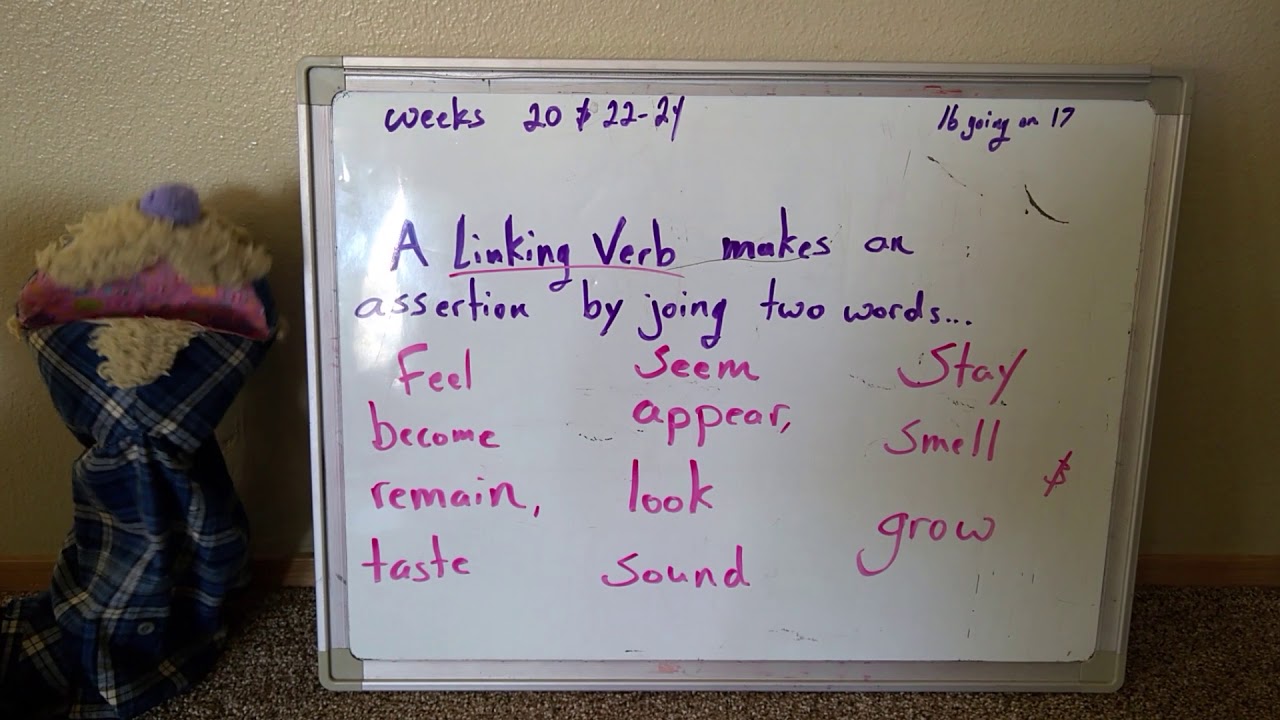 weeks 20 & 22-24
16 going on 17
A Linking Verb makes an
assertion by joing two words...
Feel seem Stay
become appear, smell
remain, look &
taste sound grow